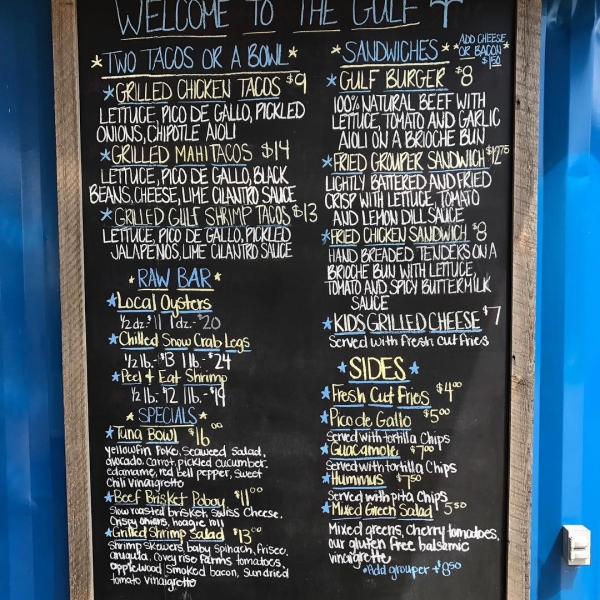 WELCOME TO THE GULF
*TWO TACOS OR A BOWL*
*GRILLED CHICKEN TACOS $9
LETTUCE, PICO DE GALLO, PICKLED
ONIONS, CHIPOTLE AIOLI
*GRILLED MAHI TACOS $14
LETTUCE, PICO DE GALLO, BLACK
BEANS, CHEESE, LIME CILANTRO SAUCE
*GRILLED GULF SHRIMP TACOS $13
LETTUCE, PICO DE GALLO, PICKLED
JALAPEÑOS, LIME CILANTRO SAUCE
*RAW BAR*
*Local Oysters
1/2 dz.-$11 1dz.-$20
*Chilled Snow Crab Legs
1/2 lb.-$13 1 lb.-$24
*Peel & Eat Shrimp
1/2 lb.-$12 1 lb.-$19
*SPECIALS*
*Tuna Bowl $16.00
yellowfin Poke, Seaweed Salad,
avocado, carrot, pickled cucumber,
edamame, red bell pepper, sweet
Chili vinaigrette
*Beef Brisket Poboy $11.00
Slow roasted brisket, Swiss Cheese,
Crispy onions, hoagie roll
*Grilled Shrimp Salad $13.00
shrimp skewers, baby spinach, frisee,
arugula, Covey rise Farms tomatoes,
applewood smoked bacon, Sundried
tomato vinaigrette
*SANDWICHES*
ADD CHEESE
*OR BACON*
$1.50
*GULF BURGER $8
100% NATURAL BEEF WITH
LETTUCE, TOMATO AND GARLIC
AIOLI ON A BRIOCHE BUN
*FRIED GROUPER SANDWICH $12.75
LIGHTLY BATTERED AND FRIED
CRISP WITH LETTUCE, TOMATO
AND LEMON DILL SAUCE
*FRIED CHICKEN SANDWICH $8
HAND BREADED TENDERS ON A
BRIOCHE BUN WITH LETTUCE,
TOMATO AND SPICY BUTTERMILK
SAUCE
*KIDS GRILLED CHEESE $7
Served with fresh cut fries
*SIDES*
*Fresh Cut Fries $4.00
*Pico de Gallo $5.00
Served with tortilla Chips
*Guacamole $7.00
Served with tortilla Chips
*Hummus $7.50
Served with pita Chips
*Mixed Green Salad $5.50
Mixed greens, Cherry tomatoes,
our gluten free balsamic
vinaigrette
*Add grouper +$8.50